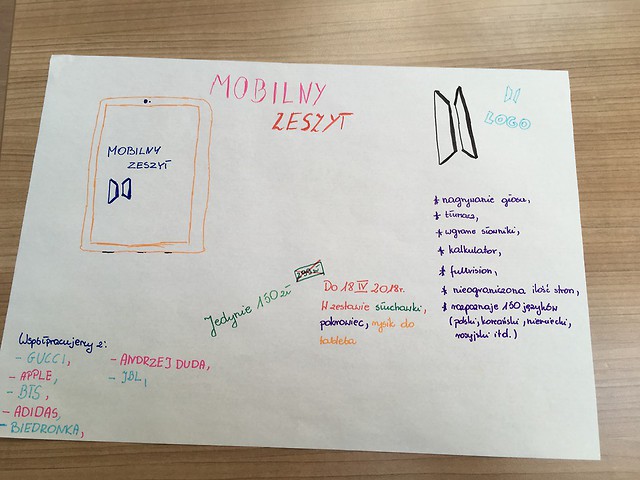 MOBILNY
ZESZYT
MOBILNY
ZESZYT
LOGO
* nagrywanie głosu,
* tłumacz,
* wgrane słowniki,
* kalkulator,
* fullvision,
* nieograniczona ilość stron,
* rozpoznaje 150 języków
(polski, koreański, niemiecki,
rosyjski itd.)
Jedynie 150 zł
Do 18 IV 2018r.
W zestawie słuchawki,
pokrowiec, rysik do
tableta
Współpracujemy z:
- GUCCI,
- APPLE,
- BTS,
- ADIDAS,
- BIEDRONKA,
- ANDRZEJ DUDA,
- JBL,